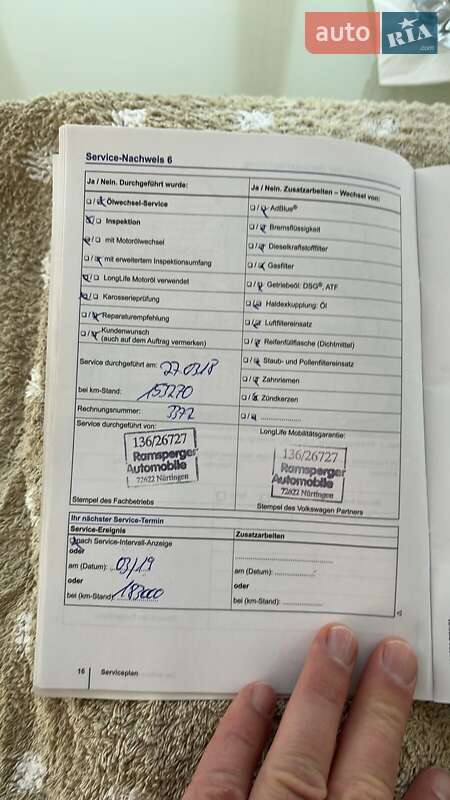 auto RIA.com
Service-Nachweis 6
Ja / Nein. Durchgeführt wurde:
Ölwechsel-Service
Inspektion
mit Motorölwechsel
mit erweitertem Inspektionsumfang
LongLife Motoröl verwendet
Karosserieprüfung
Reparaturempfehlung
Kundenwunsch
(auch auf dem Auftrag vermerken)
Service durchgeführt am: 27.03.18
bei km-Stand: 153270
Rechnungsnummer: 3372
Service durchgeführt von:
136/26727
Ramsperger
Automobile
72622 Nürtingen
Stempel des Fachbetriebs
Ja / Nein. Zusatzarbeiten – Wechsel von:
AdBlue®
Bremsflüssigkeit
Dieselkraftstofffilter
Gasfilter
Getriebeöl: DSG®, ATF
Haldexkupplung: Öl
Luftfiltereinsatz
Reifenfüllflasche (Dichtmittel)
Staub- und Pollenfiltereinsatz
Zahnriemen
Zündkerzen
LongLife Mobilitätsgarantie:
136/26727
Ramsperger
Automobile
72622 Nürtingen
Stempel des Volkswagen Partners
Ihr nächster Service-Termin
Service-Ereignis
nach Service-Intervall-Anzeige
oder
am (Datum): 03/19
oder
bei (km-Stand): 183000
Zusatzarbeiten
am (Datum):
oder
bei (km-Stand):
16 Serviceplan